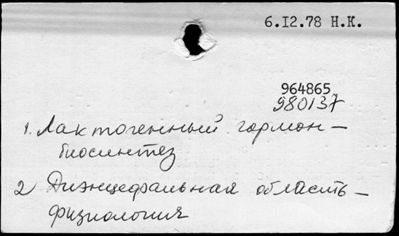 6.I2.78 Н.К.
964865
980137
1. Лактогенный гормон –
биосинтез
2 Диэнцефальная область –
физиология